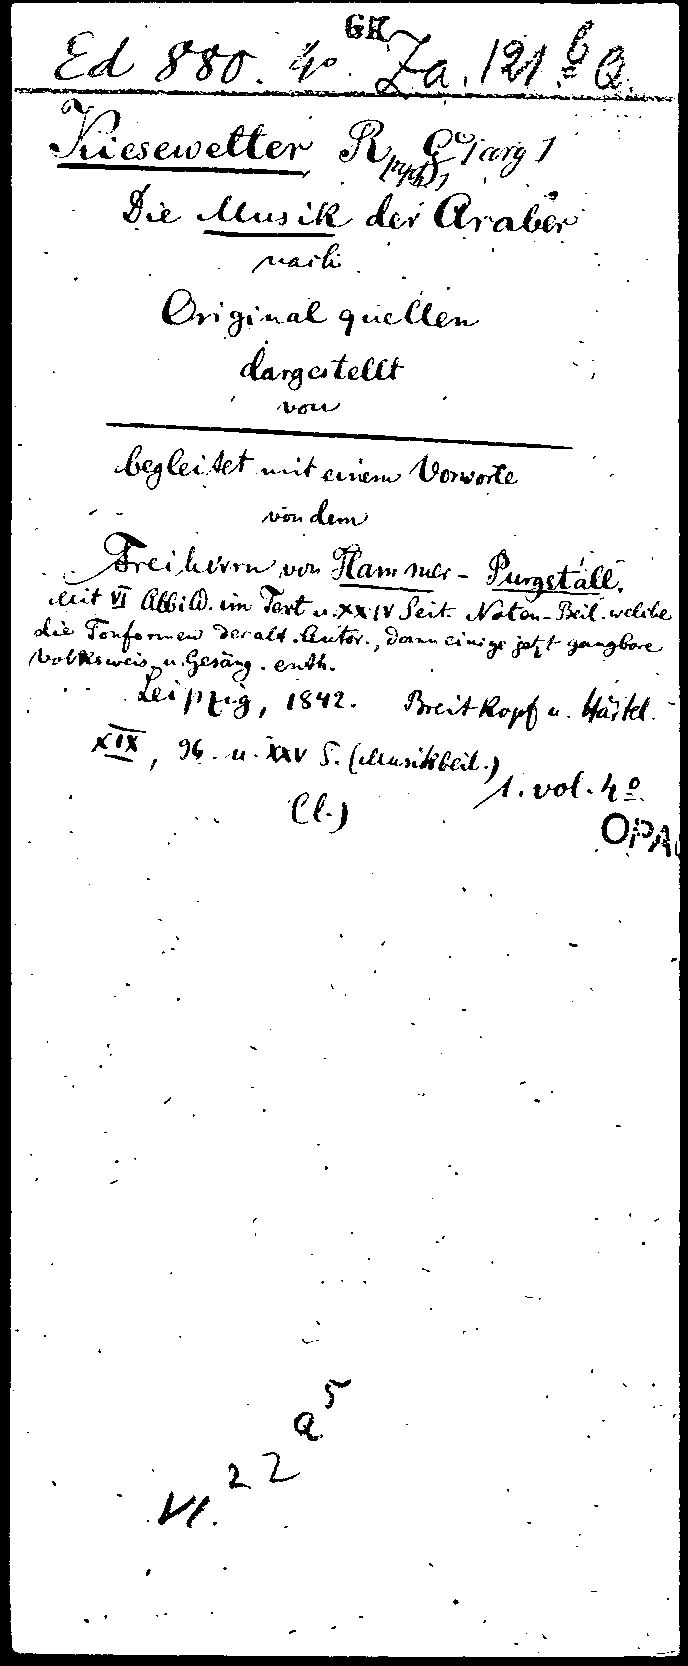 GK
Ed 880. 4o. Za. 121 b Q.
Kiesewetter R Georg
Die Musik der Araber
nach
Originalquellen
dargestellt
von
begleitet mit einem Vorworte
von dem
Freiherrn von Hammer-Purgstall.
Mit VI Abbild. im Text u. XXIV Seit. Noten-Beil. welche
die Tonformen der alt. Autor., dann einige jetzt gangbare
Volksweis. u. Gesäng. enth.
Leipzig, 1842. Breitkopf u. Härtel.
XIX, 96. u. XXV S. (Musikbeil.)
1. vol. 4o.
(l.)
OPA
VI. 22 a 5